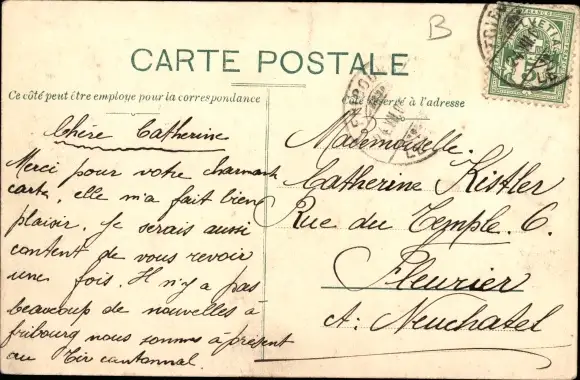 B
HELVETIA
CARTE POSTALE
Ce côté peut être employe pour la correspondance
Côté réservé à l'adresse
Chère Catherine
Merci pour votre charmante
carte, elle m'a fait bien
plaisir. Je serais aussi
content de vous revoir
une fois. Il n'y a pas
beaucoup de nouvelles à
fribourg nous sommes à présent
au Tir cantonnal
Mademoiselle.
Catherine Kistler
Rue du Temple. 6.
Fleurier
ct. Neuchatel